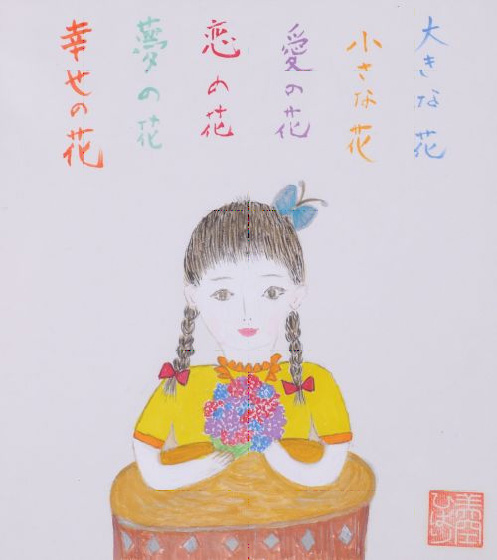 大きな花
小さな花
愛の花
恋の花
夢の花
幸せの花
美空
ひばり